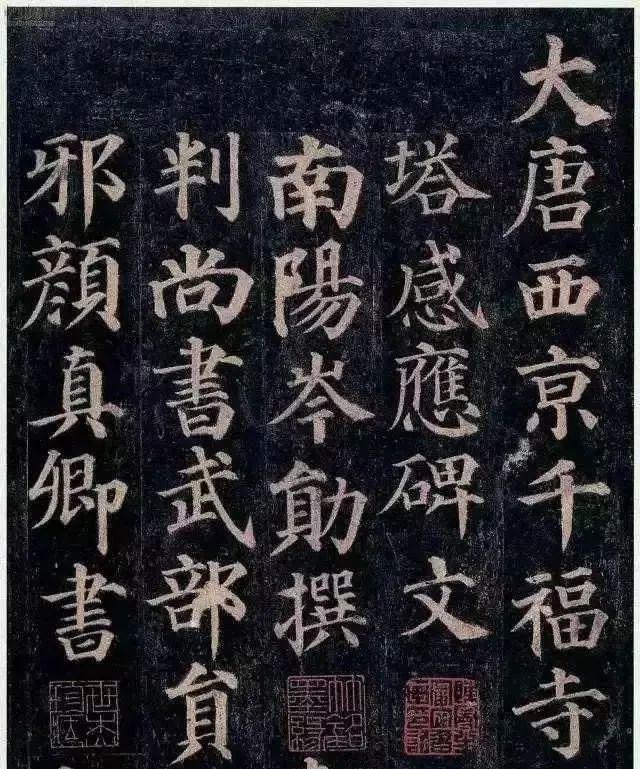 大唐西京千福寺
塔感應碑文
南陽岑勛撰
判尚書武部員
邪顏真卿書